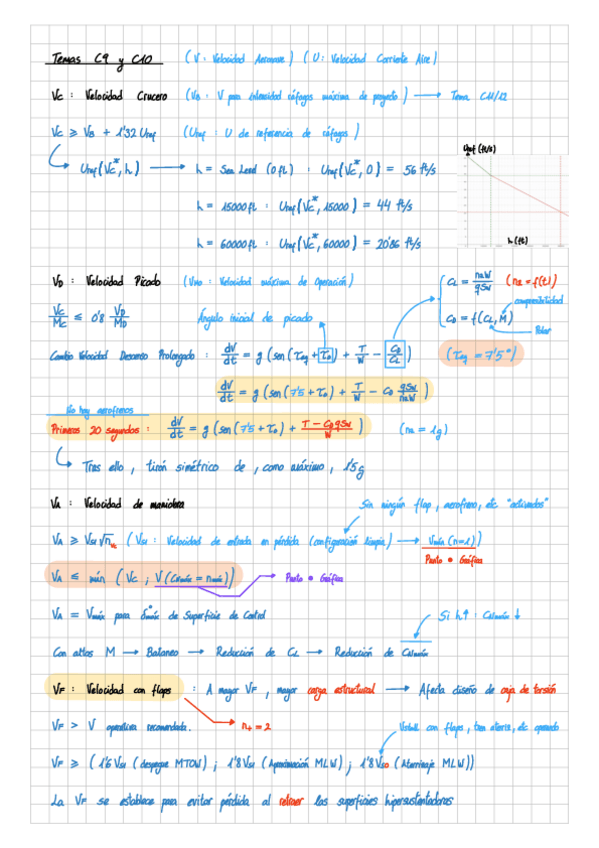 Temas C9 y C10 (V: Velocidad Aeronave) (U: Velocidad Corriente Aire)
Vc : Velocidad Crucero (VB : V para intensidad ráfagas máxima de proyecto) → Tema C11/12
Vc ≥ VB + 1'32 Uref (Uref : U de referencia de ráfagas)
Uref (Vc*, h) → h = Sea Level (0 ft) : Uref (Vc*, 0) = 56 ft/s
h = 15000 ft : Uref (Vc*, 15000) = 44 ft/s
h = 60000 ft : Uref (Vc*, 60000) = 20'86 ft/s
Uref (ft/s)
h (ft)
VD : Velocidad Picado (VMO : Velocidad máxima de Operación)
CL = naW/qSw (na = f(t))
compresibilidad
Vc/Mc ≤ 0'8 VD/MD Ángulo inicial de picado
CD = f(CL, M)
Polar
Cambio Velocidad Descenso Prolongado : dV/dt = g (sen(τeq + τo) + T/W − CD/CL) (τeq = 7'5°)
dV/dt = g (sen(7'5 + τo) + T/W − CD qSw/naW)
No hay aerofrenos
Primeros 20 segundos : dV/dt = g (sen(7'5 + τo) + T − CD qSw/W) (na = 1g)
Tras ello, tirón simétrico de, como máximo, 1'5g
VA : Velocidad de maniobra Sin ningún flap, aerofreno, etc "activados"
VA ≥ VS1 √n (VS1 : Velocidad de entrada en pérdida (configuración limpia) → Vmin (n=1))
Punto • Gráfica
VA ≤ mín (Vc ; V(CNmáx = nmáx)) → Punto • Gráfica
VA = Vmáx para δmáx de Superficie de Control
Si h↑ : CNmáx ↓
Con altos M → Bataneo → Reducción de CL → Reducción de CNmáx
VF : Velocidad con flaps : A mayor VF, mayor carga estructural → Afecta diseño de caja de torsión
VF > V operativa recomendada. n+ = 2
Vstall con flaps, tren aterriz, etc operando
VF ≥ (1'6 VS1 (despegue MTOW) ; 1'8 VS1 (Aproximación MLW) ; 1'8 VS0 (Aterrizaje MLW))
La VF se establece para evitar pérdida al retraer las superficies hipersustentadoras